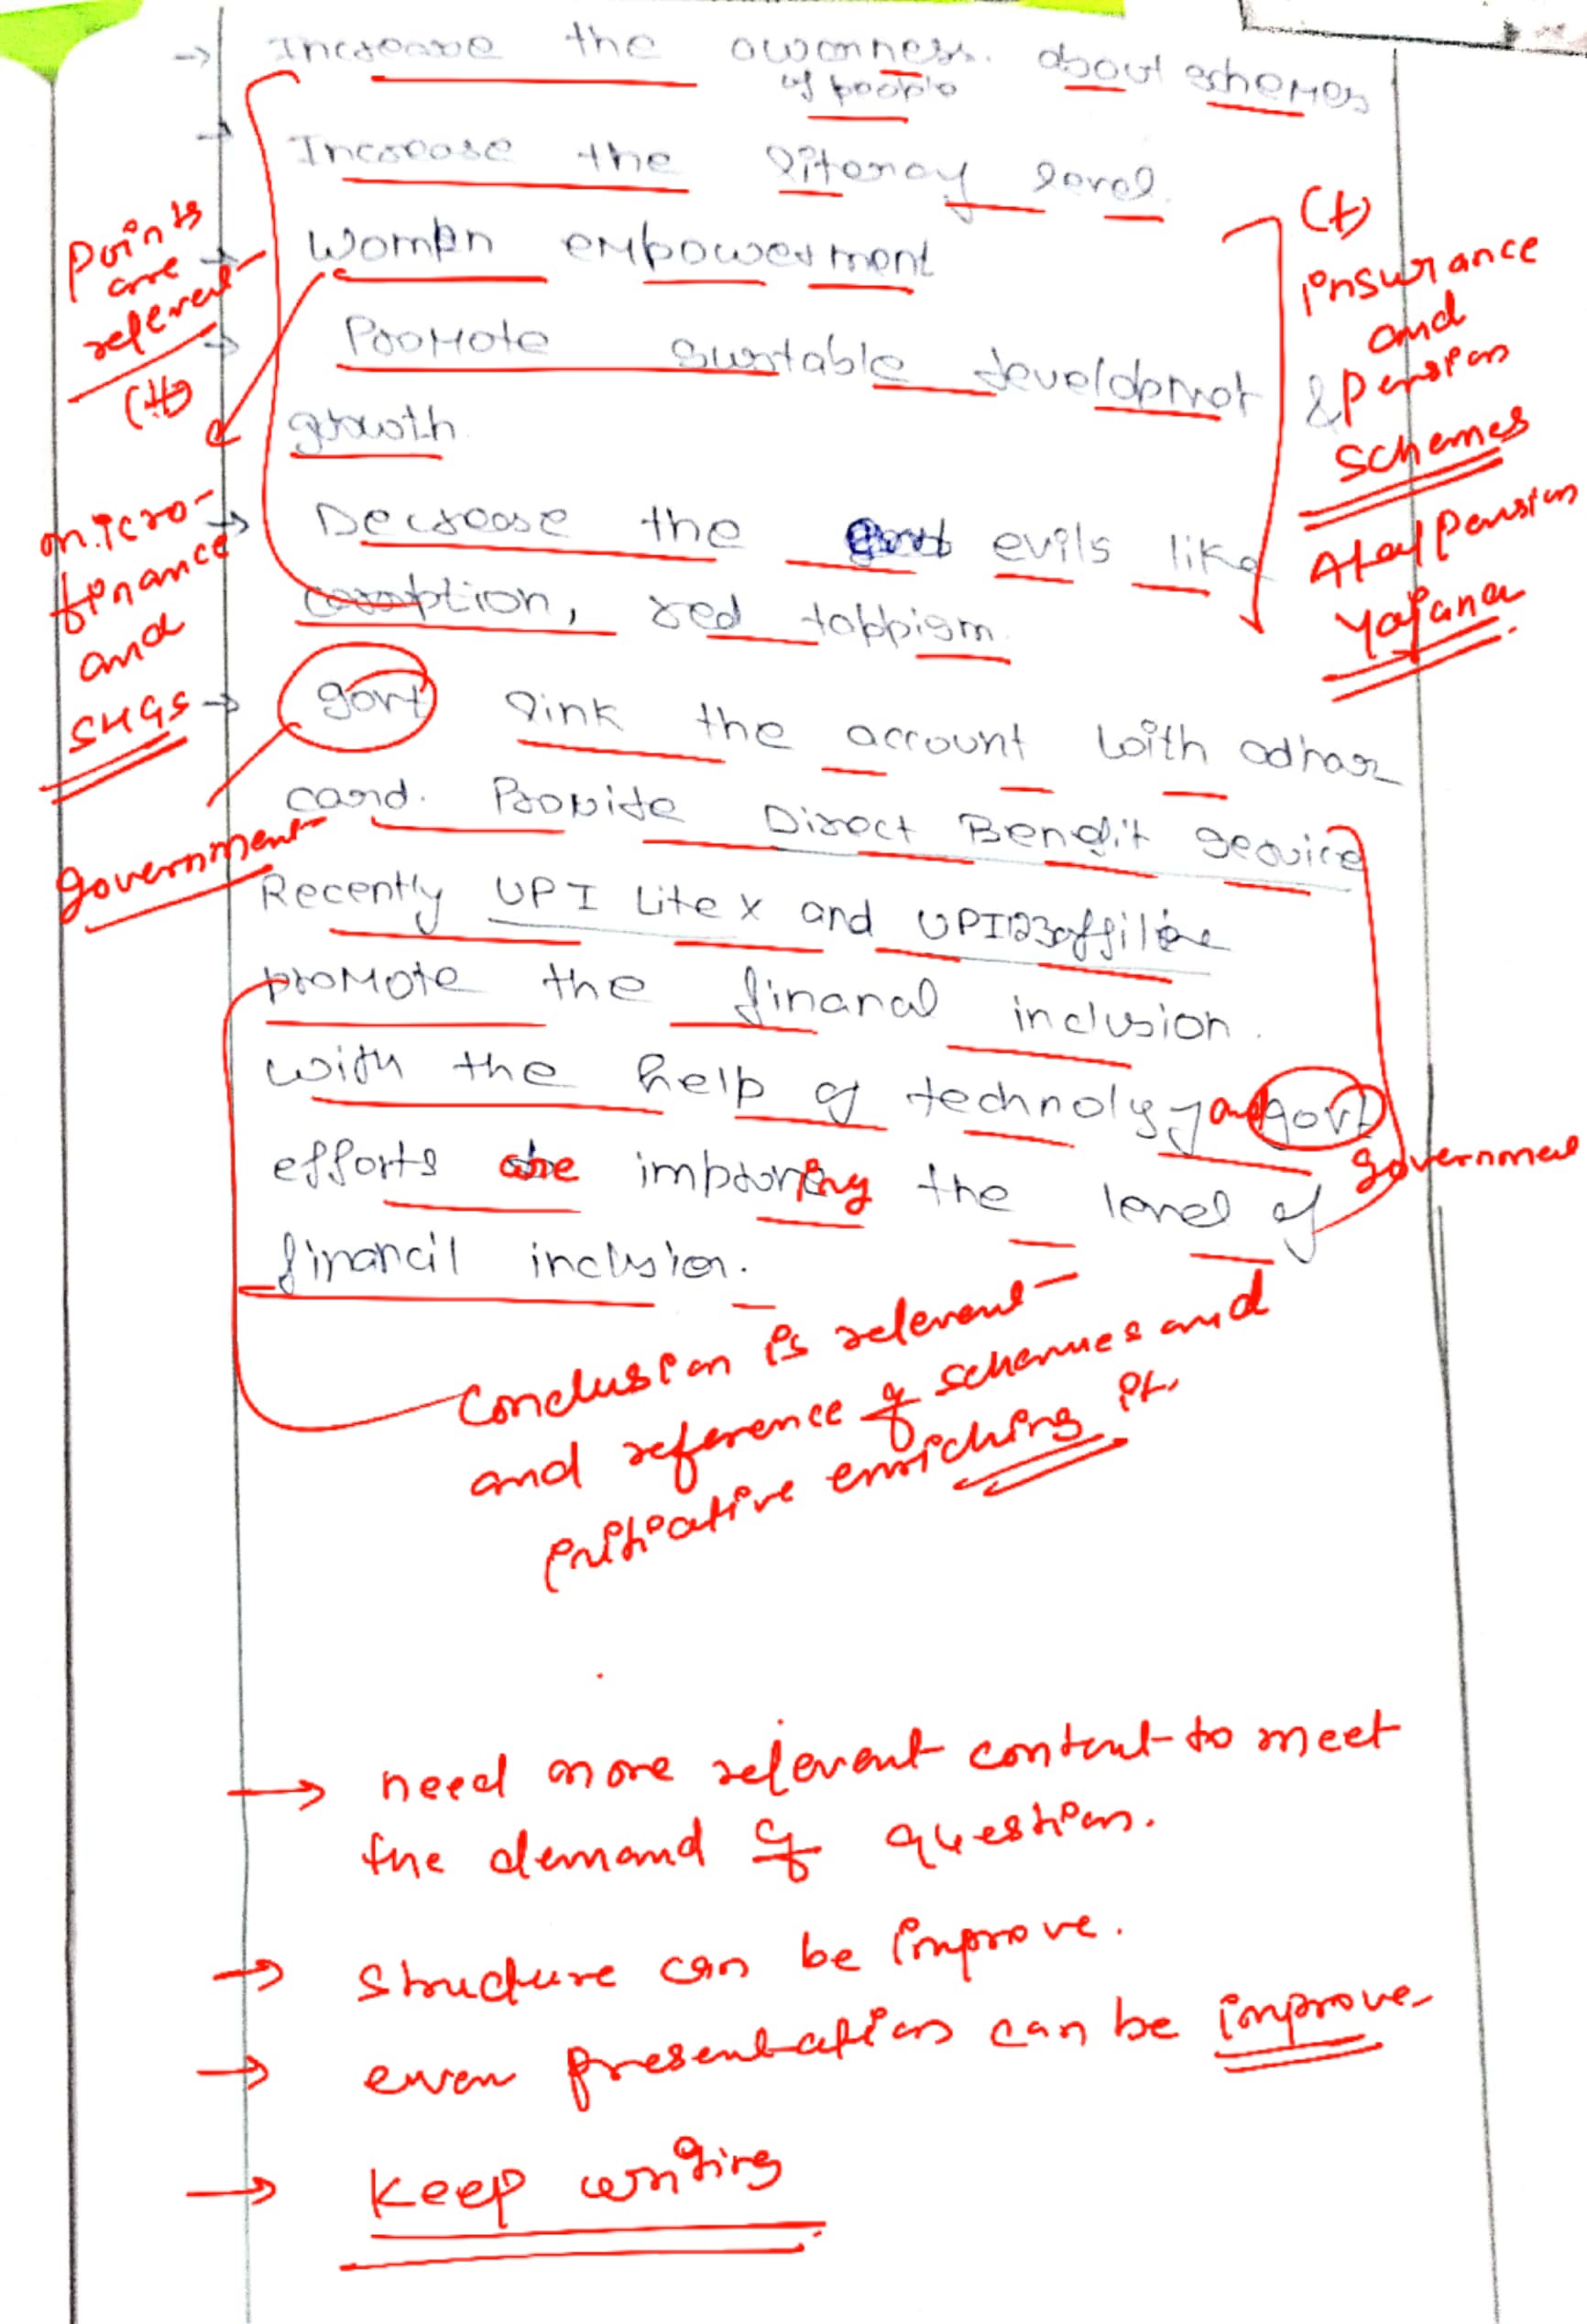 → Increase the awarness. about schemes
of people
→ Increase the literacy level.
→ Women empowerment
→ Promote sustable develdpmot
growth.
→ Decrease the evils like
corroption, red toppism.
→ govt link the account with adhar
card. Provide Direct Benefit service
Recently UPI Lite X and UPI123offiline
promote the finanal inclusion.
with the help of technolgy and govt
efforts are improving the level of
financil inclusion.
Points
are
relevent
(H)
micro-
finance
and
SHGs
Government
(+)
insurance
and
& Pension
Schemes
Atal Pension
Yojana
Government
Conclusion is relevent
and reference of schemes and
initiative enriching it.
→ need more relevent content to meet
the demand of question.
→ structure can be improve.
→ even presentation can be improve.
→ Keep writing